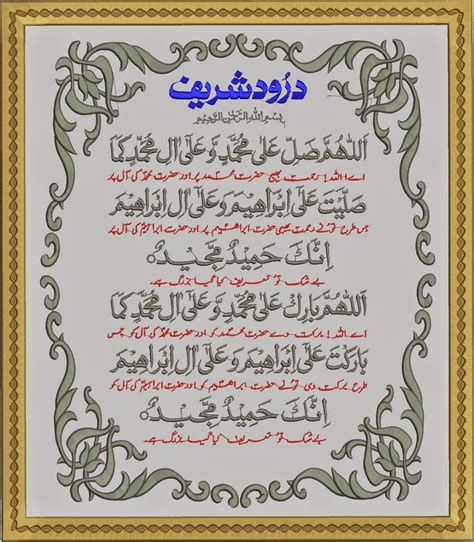 درود شریف
بِسْمِ اللهِ الرَّحْمٰنِ الرَّحِيْمِ
اَللّٰهُمَّ صَلِّ عَلٰى مُحَمَّدٍ وَّعَلٰٓى اٰلِ مُحَمَّدٍ كَمَا
اے اللہ! رحمت بھیج حضرت محمدؐ پر اور حضرت محمدؐ کی آل پر
صَلَّيْتَ عَلٰٓى اِبْرَاهِيْمَ وَعَلٰٓى اٰلِ اِبْرَاهِيْمَ
جس طرح تو نے رحمت بھیجی حضرت ابراھیمؑ پر اور حضرت ابراھیمؑ کی آل پر
اِنَّكَ حَمِيْدٌ مَّجِيْدٌ
بے شک تو تعریف کیا گیا بزرگ ہے۔
اَللّٰهُمَّ بَارِكْ عَلٰى مُحَمَّدٍ وَّعَلٰٓى اٰلِ مُحَمَّدٍ كَمَا
اے اللہ! برکت دے حضرت محمدؐ کو اور حضرت محمدؐ کی آل کو جس
بَارَكْتَ عَلٰٓى اِبْرَاهِيْمَ وَعَلٰٓى اٰلِ اِبْرَاهِيْمَ
طرح برکت دی تو نے حضرت ابراھیمؑ کو اور حضرت ابراھیمؑ کی آل کو
اِنَّكَ حَمِيْدٌ مَّجِيْدٌ
بے شک تو تعریف کیا گیا بزرگ ہے۔